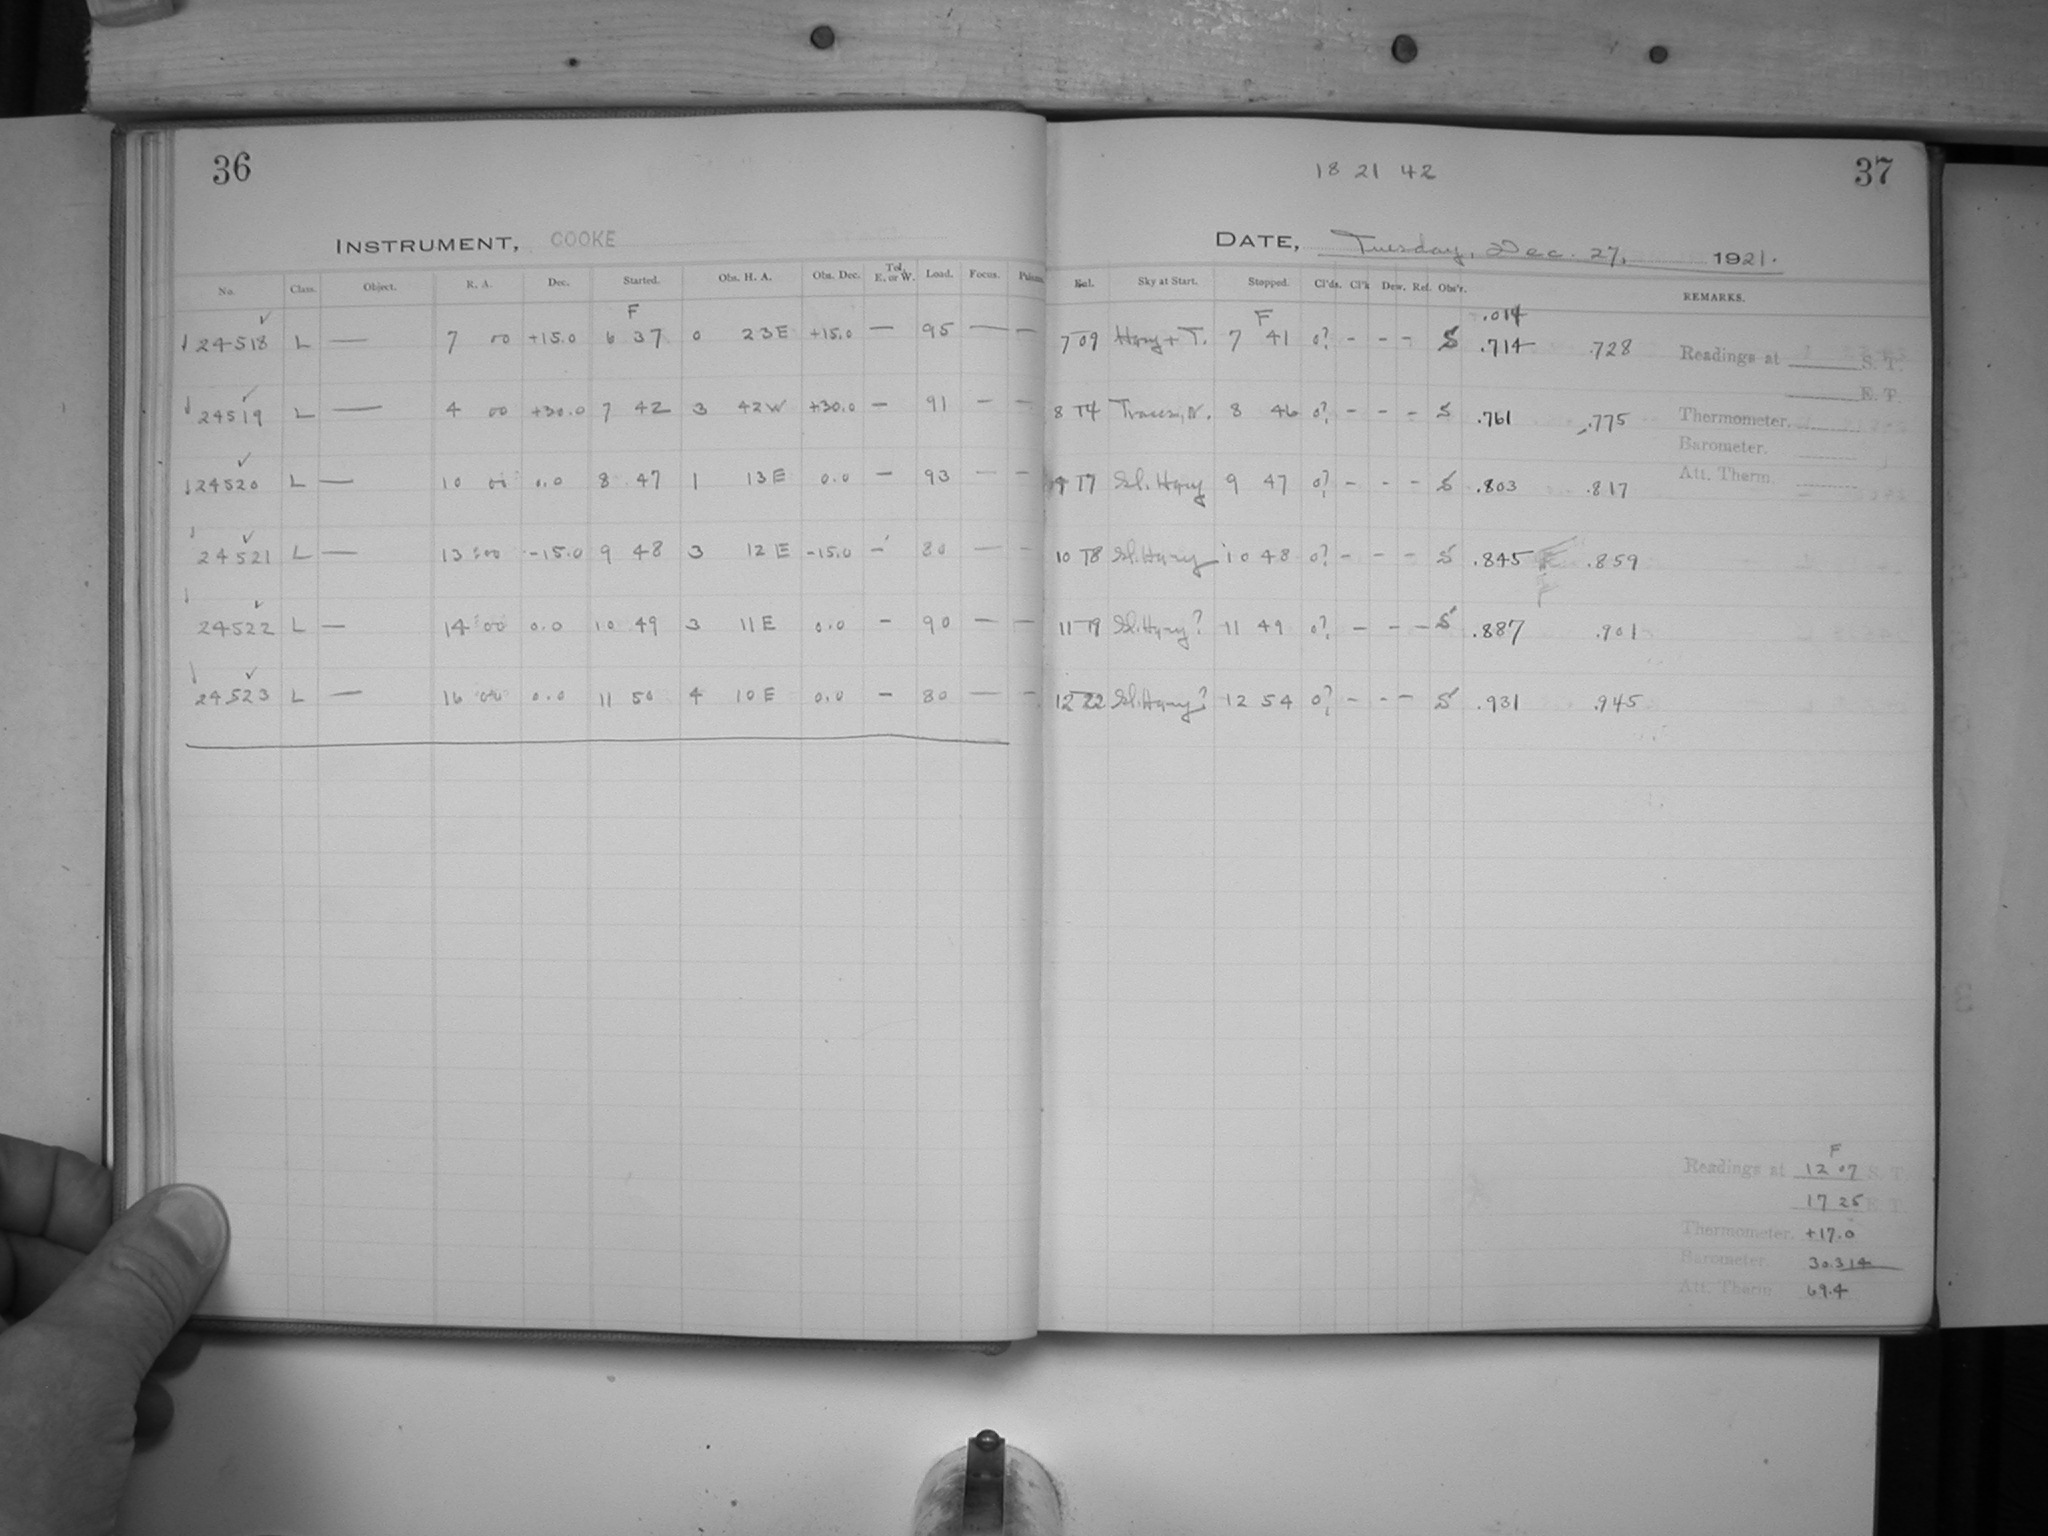 36
INSTRUMENT, COOKE
No. Class. Object. R. A. Dec. Started. Obs. H. A. Obs. Dec. Tel. E. or W. Load. Focus.
F
24518 L — 7 00 +15.0 6 37 0 23 E +15.0 — 95 — —
24519 L — 4 00 +30.0 7 42 3 42 W +30.0 — 91 — —
24520 L — 10 00 0.0 8 47 1 13 E 0.0 — 93 — —
24521 L — 13 00 -15.0 9 48 3 12 E -15.0 — 80 — —
24522 L — 14 00 0.0 10 49 3 11 E 0.0 — 90 — —
24523 L — 16 00 0.0 11 50 4 10 E 0.0 — 80 — —
18 21 42
37
DATE, Tuesday, Dec. 27, 1921.
Sky at Start. Stopped. Cl'ds. Cl'k Dew. Ref. Obs'r. REMARKS.
F .014
7 09 Hazy + T. 7 41 0? - - - S .714 .728
8 14 8 46 0? - - - S .761 .775
9 17 Sl. Hazy 9 47 0? - - - S .803 .817
10 18 Sl. Hazy 10 48 0? - - - S .845 .859
11 19 Sl. Hazy? 11 49 0? - - - S .887 .901
12 22 Sl. Hazy? 12 54 0? - - - S .931 .945
Readings at S. T.
E. T.
Thermometer.
Barometer.
Att. Therm.
F
Readings at 12 07 S. T.
17 25 E. T.
Thermometer. +17.0
Barometer. 30.314
Att. Therm. 69.4